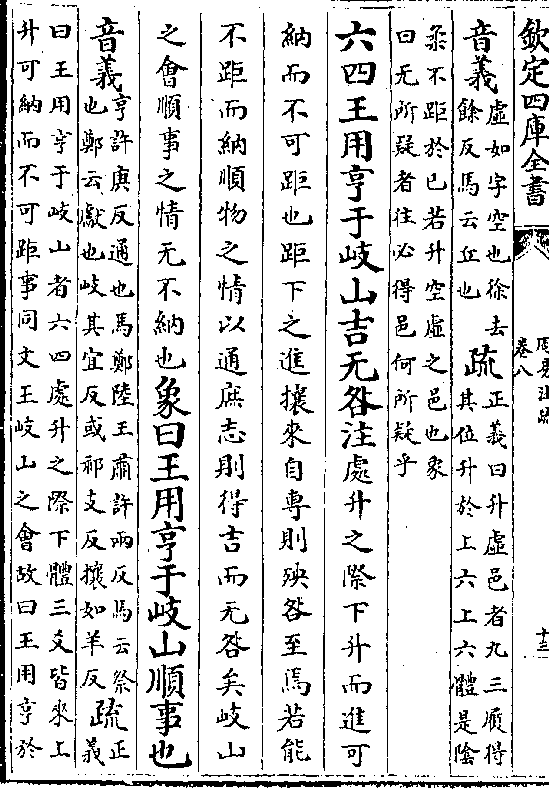 欽定四庫全書
周易注疏
卷八
音義虛如字空也徐去
餘反馬云丘也
疏正義曰升虛邑者九三履得
其位升於上六上六體是陰
柔不距於已若升空虛之邑也象
曰无所疑者往必得邑何所疑乎
六四王用亨于岐山吉无咎注處升之際下升而進可
納而不可距也距下之進攘來自專則殃咎至焉若能
不距而納順物之情以通庶志則得吉而无咎矣岐山
之會順事之情无不納也象曰王用亨于岐山順事也
音義亨許庚反通也馬鄭陸王肅許兩反馬云祭
也鄭云獻也岐其宜反或祁支反攘如羊反
疏正
義
曰王用亨于岐山者六四處升之際下體三爻皆來上
升可納而不可距事同文王岐山之會故曰王用亨於